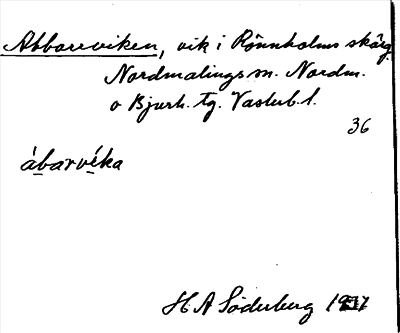 Abborrviken, vik i Rönnholms skärg.
Nordmalings sn. Nordm.
o Bjurh. tg. Västerb. l.
36
ábarvéka
H A Söderberg